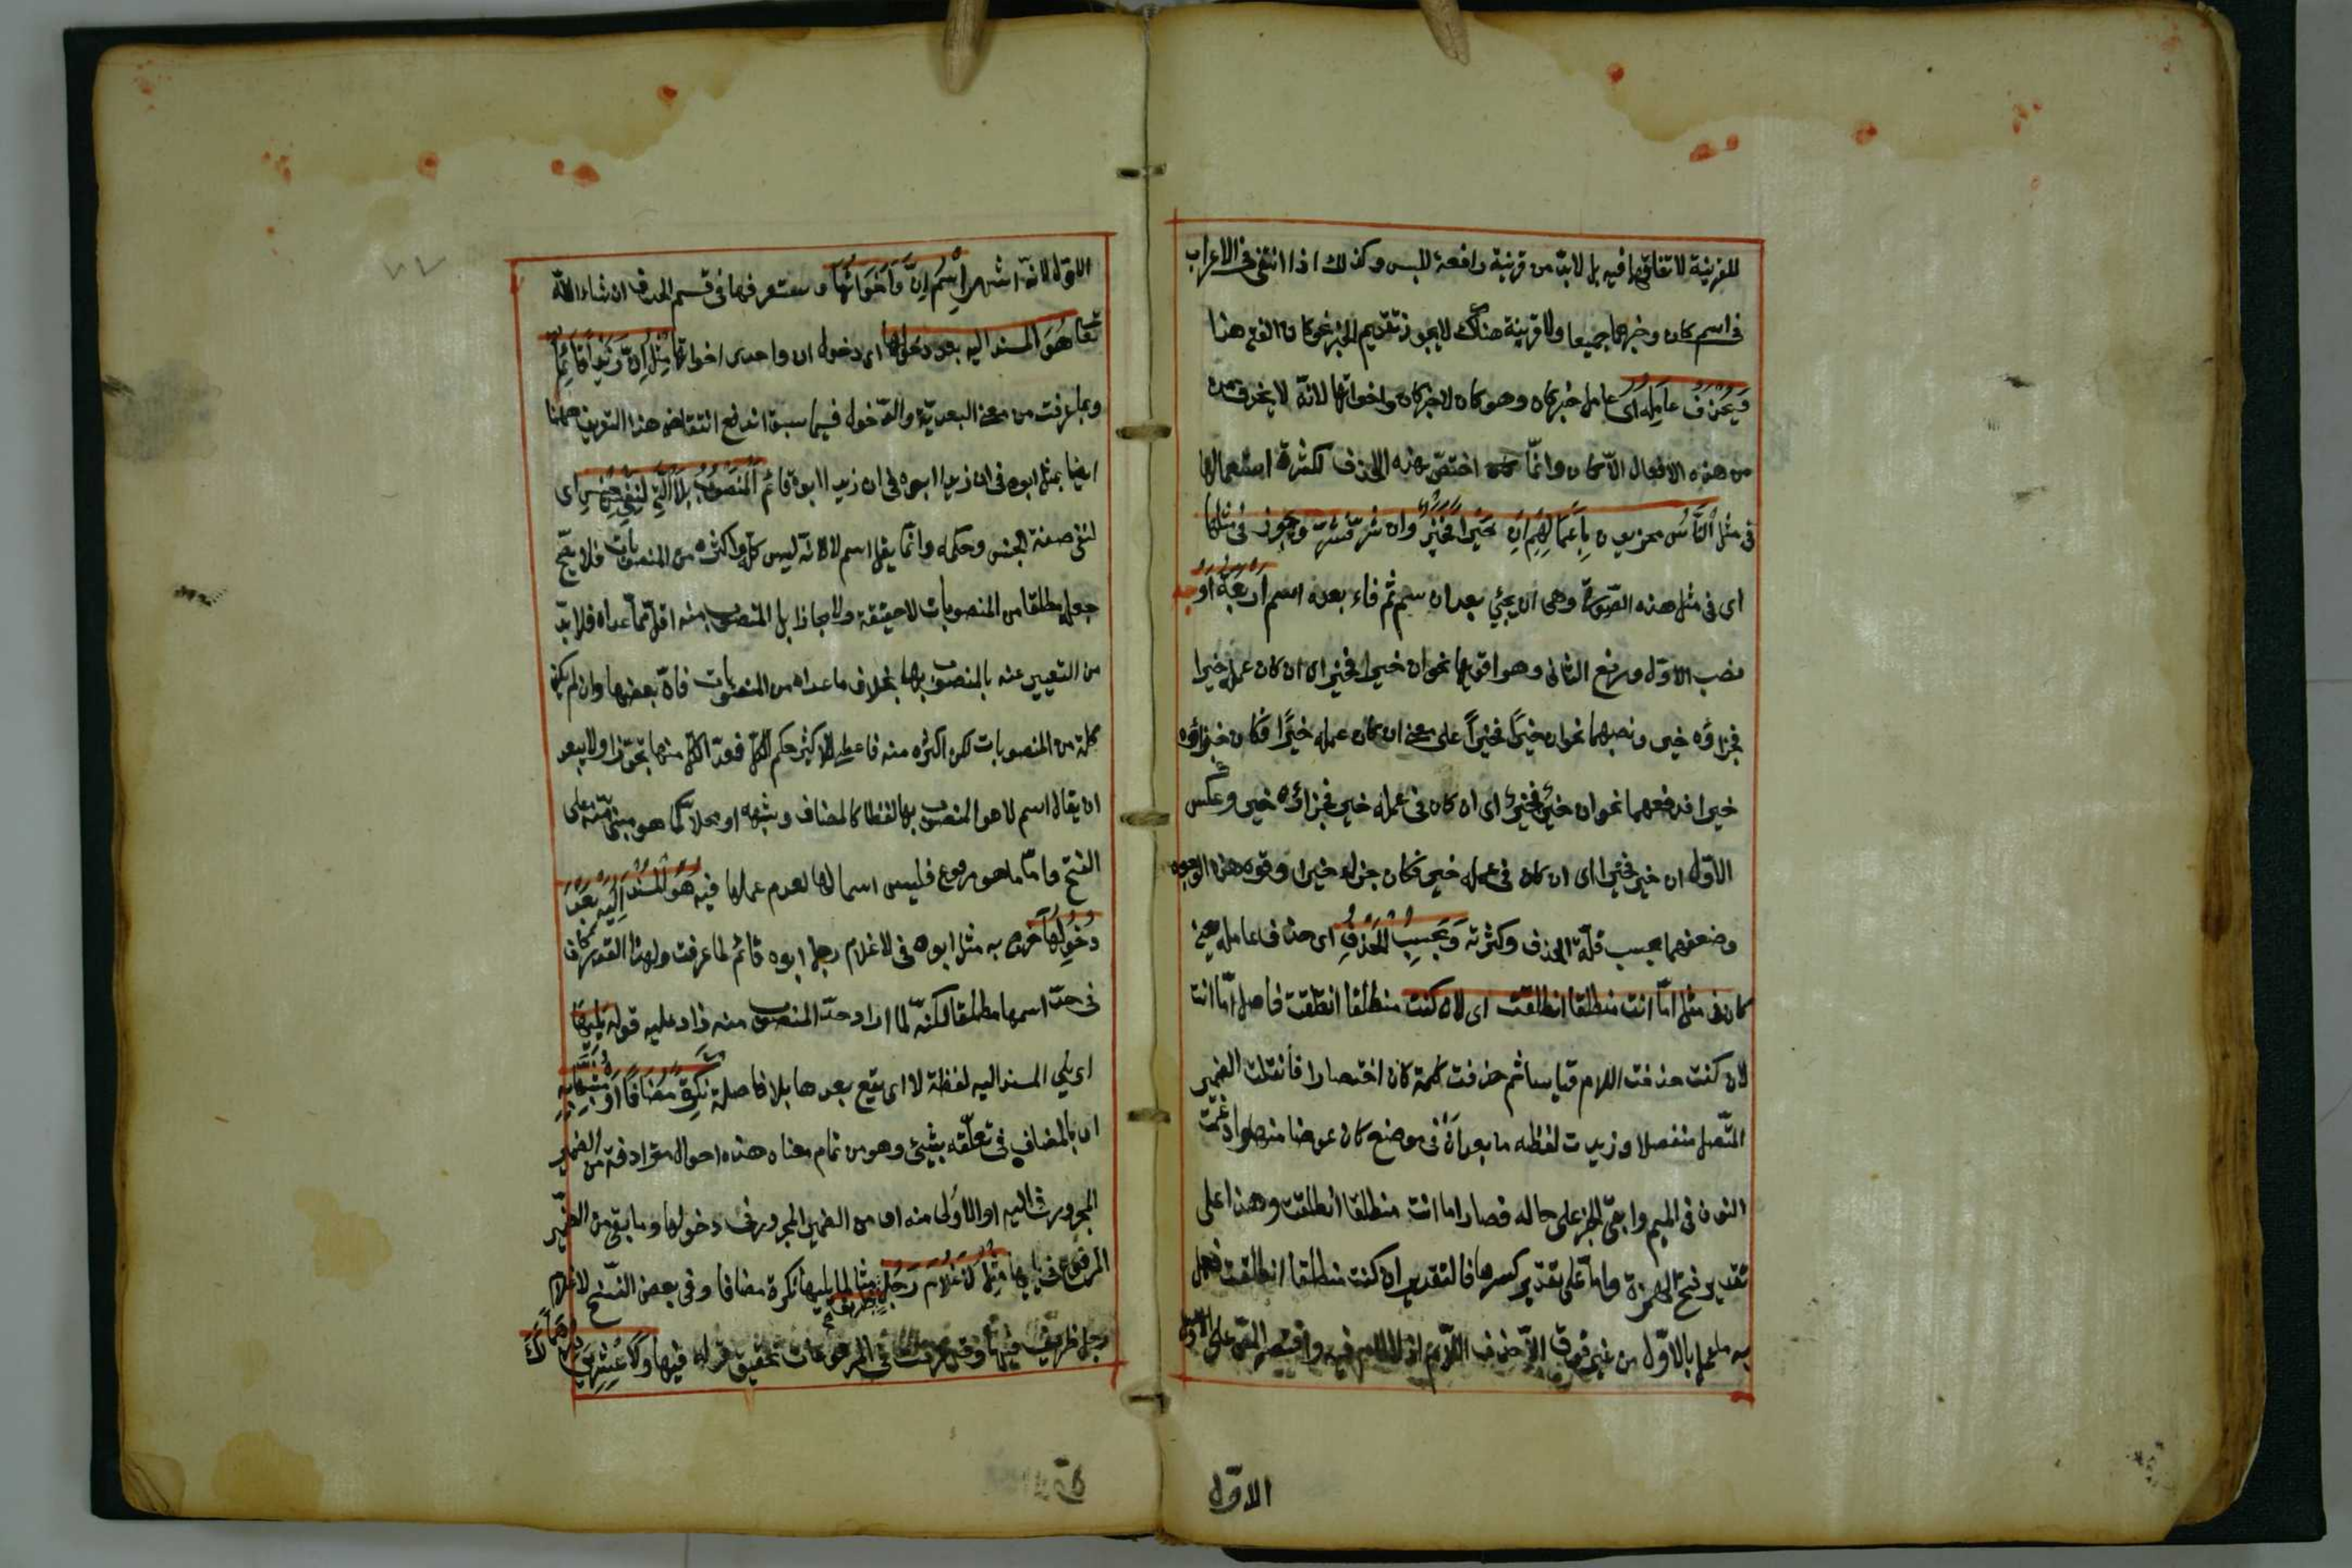 للقرينة لاتفاقهما فيه بل لابدّ من قرينة رافعة للبس وكذلك اذا انتفى الاعراب
فى اسم كان وخبرهما جميعا ولا قرينة هناك لايجوز تقديم الخبر نحو كان الفتى هذا
وَيُحْذَفُ عَامِلُه اى عامل خبر كان وهو كان لا خبر كان واخواتها لانّه لا يحذف
من هذه الافعال الاّ كان وانّما اختصّ بهذه الحذف لكثرة استعمالها
فى مثل اَلنَّاسُ مجزيون بِاَعْمَالِهِمْ اِنْ خَيْرًا فَخَيْرٌ وان شرّ فشرّ ويجوز فى مثلها
اى فى مثل هذه الصّورة وهى ان يجئ بعد ان اسم ثم فاء بعده اسم اَرْبَعَةُ اَوْجُه
نصب الاوّل ورفع الثانى وهو اقويها نحو ان خيرا فخير اى ان كان عمله خيرا
فجزاؤه خير ونصبهما نحو ان خيرًا فخيرًا على معنى ان كان عمله خيرًا فكان جزاؤه
خيرا ورفعهما نحو ان خيرٌ فخيرٌ اى ان كان فى عمله خير فجزاؤه خير وعكس
الاوّل ان خير فخيرا اى ان كان فى عمله خير فكان جزاؤه خيرا وقوة هذه الوجوه
وضعفهما بحسب قلّة الحذف وكثرته وَيَجِبُ الْحَذْفُ اى حذف عامله يعنى
كان فى مثل امّا انت منطلقا انطلقت اى لان كنت منطلقا انطلقت فاصل امّا انت
لان كنت حذفت اللام قياسا ثم حذفت كلمة كان اختصارا فانقلب الضمير
المتّصل منفصلا وزيدت لفظه ما بعد اَنْ فى موضع كان عوضا منها وادغمت
النون فى الميم وابقى الخبر على حاله فصار اما انت منطلقا انطلقت وهذا على
تقدير فتح الهمزة وامّا على تقدير كسرها فالتقدير ان كنت منطلقا انطلقت فعمل
به ما عمل بالاوّل من غير فرق الاّ حذف اللاّم اذ لا لام فيه واقتصر المصّ على الاوّل
الاوّل
الاوّل لانّه اشهر اِسْمُ اِنَّ وَاَخَوَاتُهَا وستعرفها فى قسم الحرف ان شاء الله
تعا هُوَ المسند اليه بعد دخولها اى دخول ان واحدى اخواتها مِثْلُ اِنَّ زَيْدًا قَائِمٌ
وبما عرفت من معنى البعديّة والدّخول فيما سبق اندفع انتقاض هذا التعريف ههنا
ايضا بمثل ابوه فى ان زيدا ابوه فى ان زيدا ابوه قائم اَلْمَنْصُوبُ بِلاَ الَّتِى لِنَفْىِ الجِنْسِ اى
لنفى صفة الجنس وحكمه وانّما يقل اسم لا لانّه ليس كلّه ولا اكثره من المنصوبات فلا يصحّ
جعله مطلقا من المنصوبات لا حقيقة ولا مجازا بل المنصوب منه اقلّ ممّا عداه فلا بدّ
من التعبير عنه بالمنصوب بها بخلاف ما عداه من المنصوبات فانّ بعضها وان لم يكن
كلّه من المنصوبات لكن اكثره منه فاعطى للاكثر حكم الكلّ فعدّ الكلّ منها تجوّزا ولا يبعد
ان يقال اسم لا هو المنصوب بها لفظا كالمضاف وشبهه او محلاّ كما هو مبنىّ منه على
الفتح وامّا ما هو مرفوع فليس اسما لها لعدم عملها فيه هُوَ الْمُسْنَدُ اِلَيْهِ بَعْدَ
دُخُولِهَا خرج به مثل ابوه فى لا غلام رجل ابوه قائم لما عرفت وهذا القدر كاف
فى حدّ اسمها مطلقا لكنّه لما اراد حدّ المنصوب منه زاد عليه قوله يَلِيهَا
اى يلى المسند اليه لفظة لا اى يقع بعدها بلا فاصلة نَكِرَةً مُضَافًا اَوْ مُشَبَّهًا بِهِ
اى بالمضاف فى تعلّقه بشئ وهو من تمام معناه هذه احوال مترادفة من الضمير
المجرور فى اليه او الاولى منه اى من الضمير المجرور فى دخولها وما بقى من الضمير
المرفوع فى يليها مِثْلُ لاَ غُلاَمَ رَجُلٍ مثال لما يليها نكرة مضافا وفى بعض النّسخ لا غلام
رجل ظريف فيها وقد عرفت فى المرفوعات تحقيق قوله فيها وَلاَ عِشْرِينَ دِرْهَمًا لَكَ